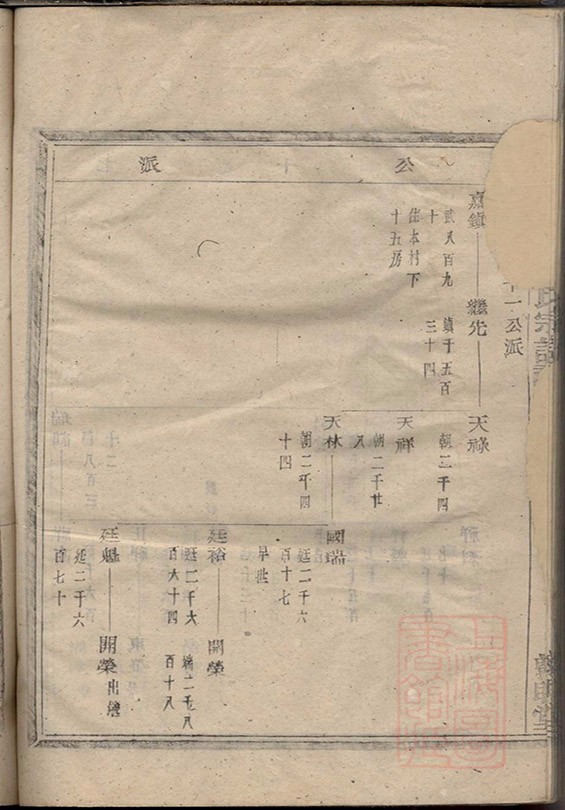 公 十 派
十一公派
氏宗譜
嘉鎮
武八百九
十
住本村下
十五房
繼先
鎮千五百
三十四
天祿
朝二千四
天祥
朝二千廿
八
天林
朝二千四
十四
國瑞
廷二千六
百十七
早世
廷裕
廷二千六
百六十四
開榮
百十八
廷魁
廷二千六
百七十
開榮
出繼